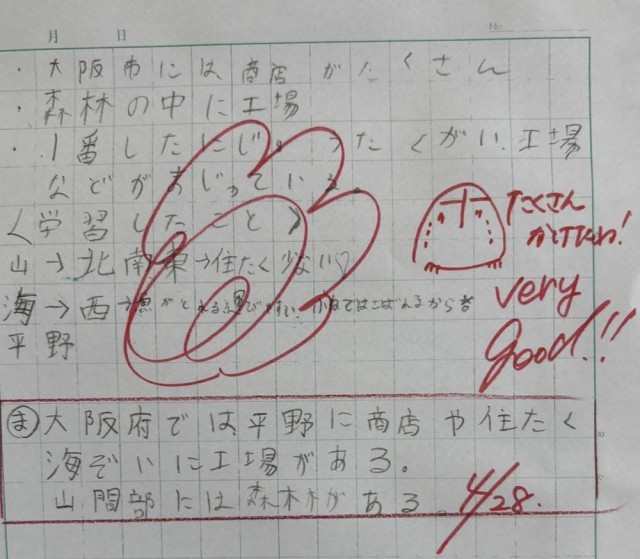 月 日 No.
・大阪市には商店がたくさん
・森林の中に工場
・1番したにじゅうたくがい、工場
などがまじっている。
く学習したこと〉
山→北南東→住たく少ない
海→西→魚がとれる 運びやすい ふねではこばれるから
平野
たくさん
かけたね!
very
good!!
ま 大阪府では平野に商店や住たく
海ぞいに工場がある。
山間部には森林がある。
4/28.